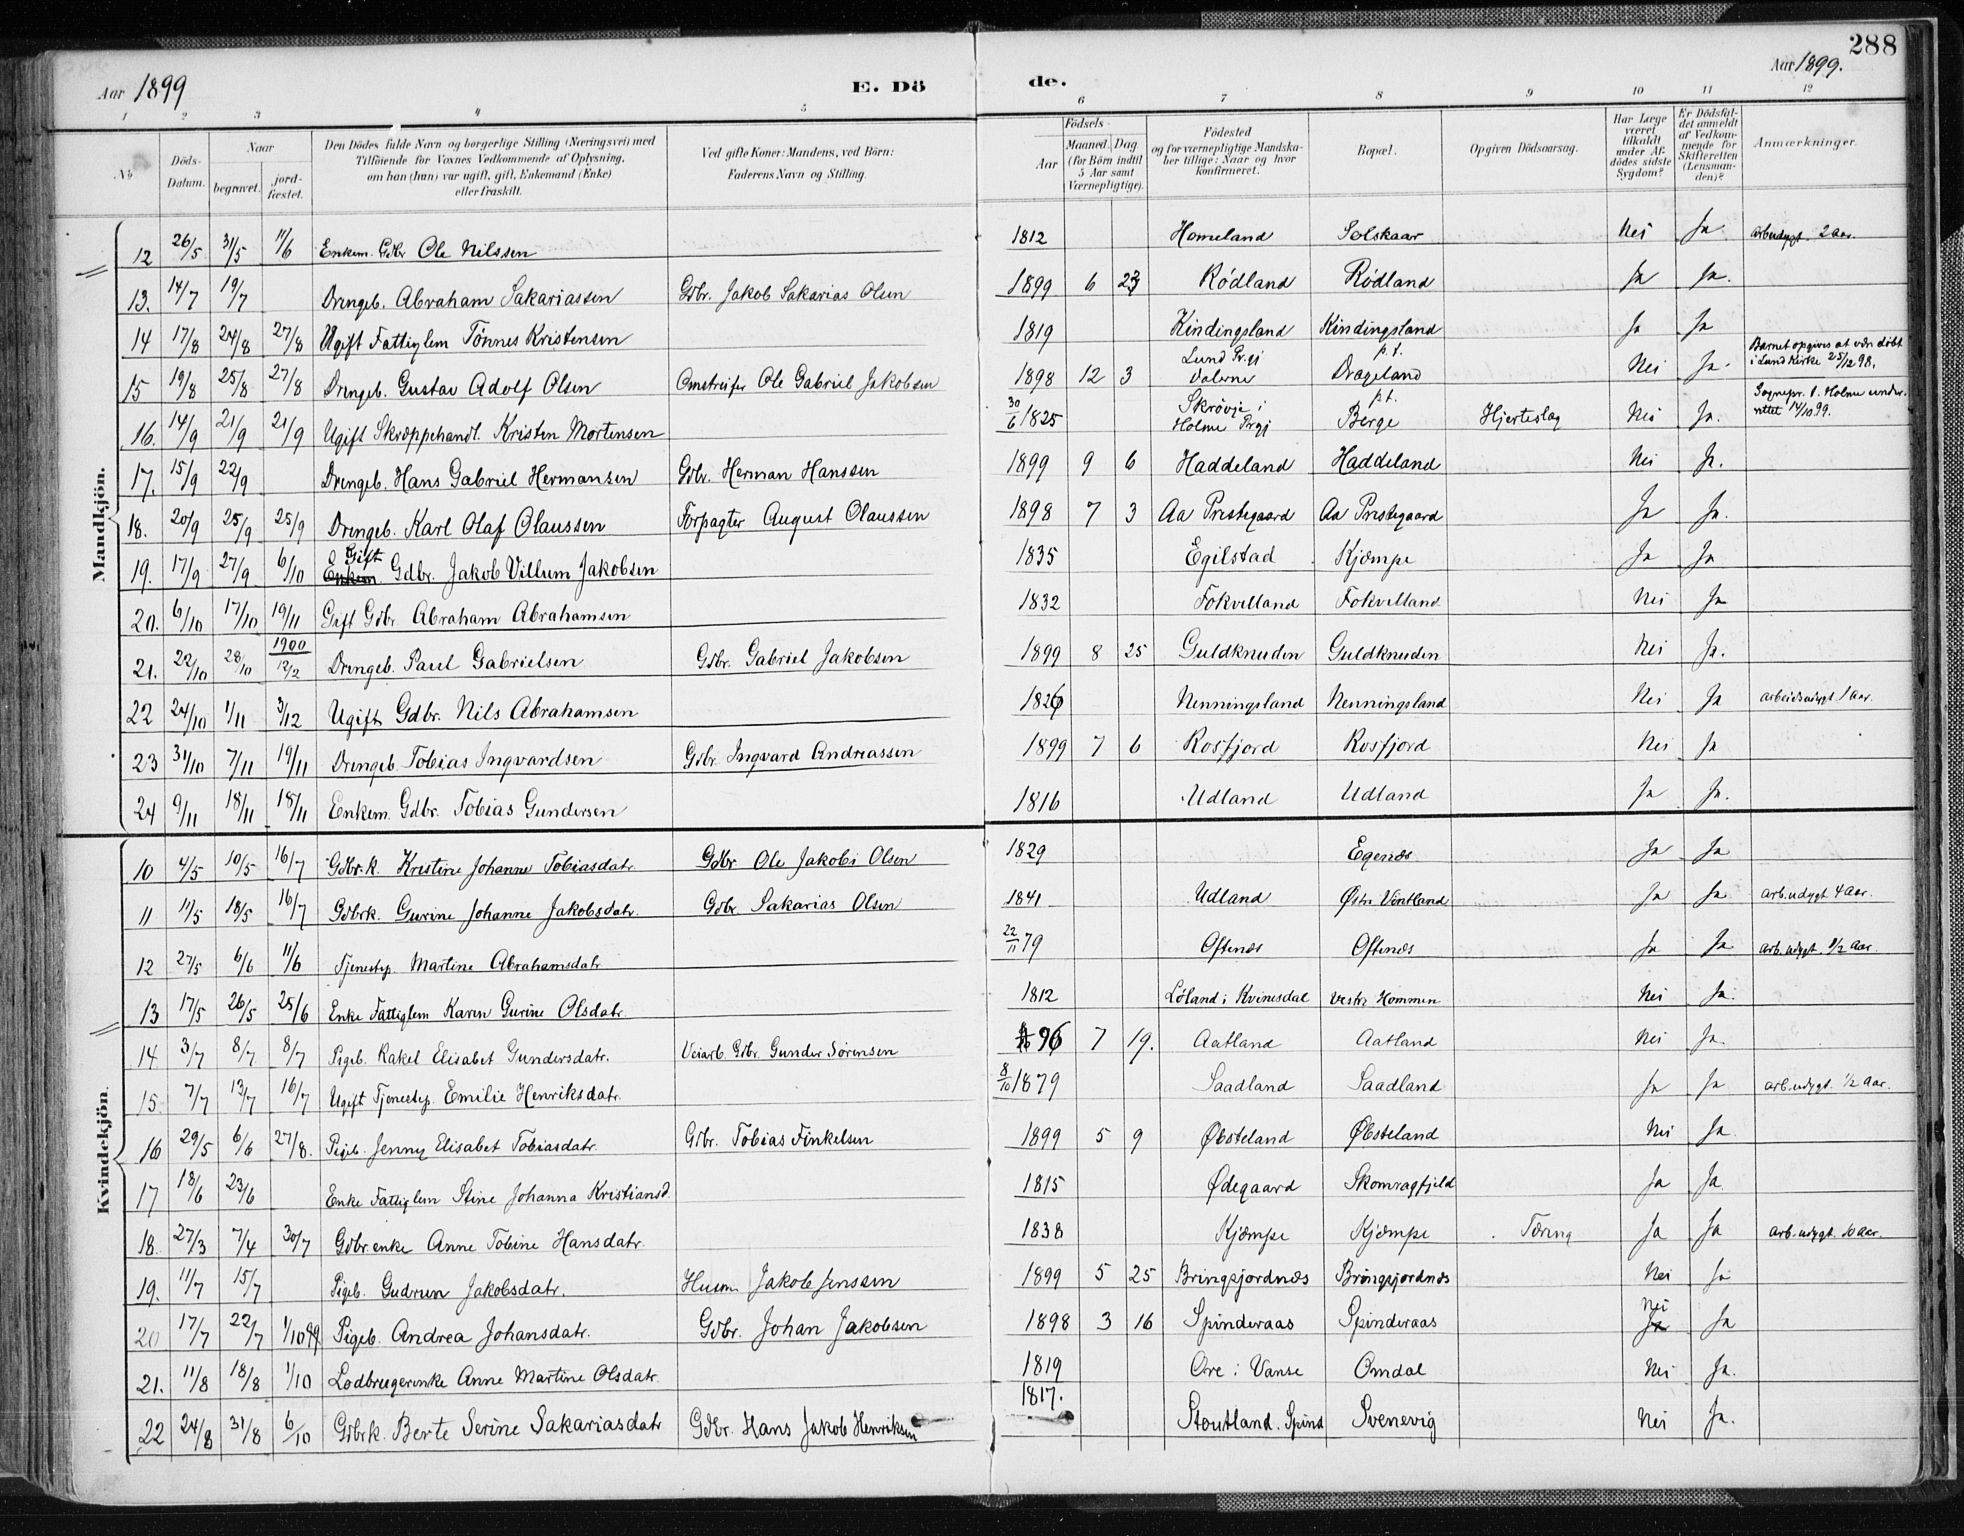 288
Aar 1899 E. Dö de. Aar 1899.
1 2 3 4 5 6 7 8 9 10 11 12
No. Döds-Datum. Naar begravet. jord-fæstet. Den Dödes fulde Navn og borgerlige Stilling (Næringsvei) med Tilföiende for Voxnes Vedkommende af Oplysning, om han (hun) var ugift, gift, Enkemand (Enke) eller fraskilt. Ved gifte Koner: Mandens, ved Börn: Faderens Navn og Stilling. Födsels- Aar Maaned. Dag (for Börn indtil 5 Aar samt Værnepligtige). Födested og for værnepligtige Mandskaber tillige: Naar og hvor konfirmeret. Bopæl. Opgiven Dödsaarsag. Har Læge været tilkaldt under Afdödes sidste Sygdom? Er Dödsfaldet anmeldt af Vedkommende for Skifteretten (Lensmanden)? Anmærkninger.
Mandkjön.
12 26/5 31/5 11/6 Enkem. Gdbr Ole Nilssen 1812 Homeland Solskaar Nei Ja arbudygt. 2 aar.
13. 14/7 19/7 Drengeb. Abraham Sakariassen Gdbr. Jakob Sakarias Olsen 1899 6 23 Rödland Rödland Ja Ja.
14 17/8 24/8 27/8 Ugift Fattiglem Tönnes Kristensen 1819 Kindingsland Kindingsland Ja Ja
15 19/8 25/8 27/8 Drengeb. Gustav Adolf Olsen Omstreifer Ole Gabriel Jakobsen 1898 12 3 Lund Prgj p.t. Drageland Nei Ja. Barnet opgives at være döbt i Lund Kirke 25/12 98.
16. 14/9 21/9 21/9 Ugift Skræppehandl. Kristen Mortensen 30/6 1825 Skrövje i Holme Prgj p.t. Berge Hjerteslag Nei Ja. Sognepr. i Holme underrettet 14/10 99.
17. 15/9 22/9 Drengeb. Hans Gabriel Hermansen Gdbr. Herman Hanssen 1899 9 6 Haddeland Haddeland Nei Ja.
18. 20/9 25/9 25/9 Drengeb. Karl Olaf Olaussen Forpagter August Olaussen 1898 7 3 Aa Prestegaard Aa Prestegaard Ja Ja.
19. 17/9 27/9 6/10 Gift Enkem. Gdbr. Jakob Villum Jakobsen 1835 Egilstad Kjæmpe Ja Ja
20. 6/10 17/10 19/11 Gift Gdbr Abraham Abrahamsen 1832 Fokvelland Fokvelland Nei Ja
21. 22/10 28/10 1900 12/2 Drengeb. Paul Gabrielsen Gdbr. Gabriel Jakobsen 1899 8 25 Guldknuden Guldknuden Nei Ja.
22 24/10 1/11 3/12 Ugift Gdbr. Nils Abrahamsen 1826 Nenningsland Nenningsland Nei Ja arbeidsudygt. 1 aar.
23 31/10 7/11 19/11 Drengeb. Tobias Ingvardsen Gdbr. Ingvard Andreassen 1899 7 6 Rosfjord Rosfjord Nei Ja
24 9/11 18/11 18/11 Enkem. Gdbr. Tobias Gundersen 1816 Udland Udland Ja Ja.
Kvindekjön.
10 4/5 10/5 16/7 Gdbr.k. Kristine Johanne Tobiasdatr. Gdbr Ole Jakobi Olsen 1829 Egenæs Ja Ja
11 11/5 18/5 16/7 Gdbrk. Gurine Johanne Jakobsdatr. Gdbr. Sakarias Olsen 1841 Udland Østre Vintland Ja Ja arb.udygt 4 aar.
12 27/5 6/6 11/6 Tjenestep. Martine Abrahamsdatr 22/11 79 Oftenæs Oftenæs Ja Ja arb.udygt. 1/2 aar.
13 17/5 26/5 25/6 Enke Fattiglem Karen Gurine Olsdatr. 1812 Löland i Kvinesdal Vestre Hommen Nei Ja.
14. 3/7 8/7 8/7 Pigeb. Rakel Elisabet Gundersdatr. Veiarb. Gdbr. Gunder Sörensen 96 7 19. Aatland Aatland Nei Ja.
15. 7/7 13/7 16/7 Ugift Tjenestep. Emilie Henriksdatr. 8/10 1879 Saadland Saadland Ja Ja arb.udygt. 1/2 aar.
16 29/5 6/6 27/8. Pigeb. Jenny Elisabet Tobiasdatr. Gdbr. Tobias Finkelsen 1899 5 9 Øbsteland Øbsteland Nei Ja.
17 18/6 23/6 Enke Fattiglem Stine Johanna Kristiansd. 1815 Ødegaard Skomragfjeld Ja Ja
18. 27/3 7/4 30/7 Gdbr.enke Anne Tobine Hansdatr. 1838 Kjæmpe Kjæmpe Tæring Ja Ja arb.udygt. 10 aar.
19. 11/7 15/7 Pigeb. Gudrun Jakobsdatr. Husm. Jakob Jenssen 1899 5 25 Bringsjordnæs Bringsjordnæs Nei Ja
20 17/7 22/7 1/10 99 Pigeb. Andrea Johansdatr. Gdbr. Johan Jakobsen 1898 3 16 Spinderaas Spinderaas Nei Ja Ja
21. 11/8 18/8 1/10 Lodbrugerenke Anne Martine Olsdatr 1819 Ore i Vanse Omdal Nei Ja.
22 24/8 31/8 6/10 Gdbrk. Berte Serine Sakariasdatr Gdbr. Hans Jakob Henriksen 1817. Stoutland. Spind Svenevig Nei Ja.